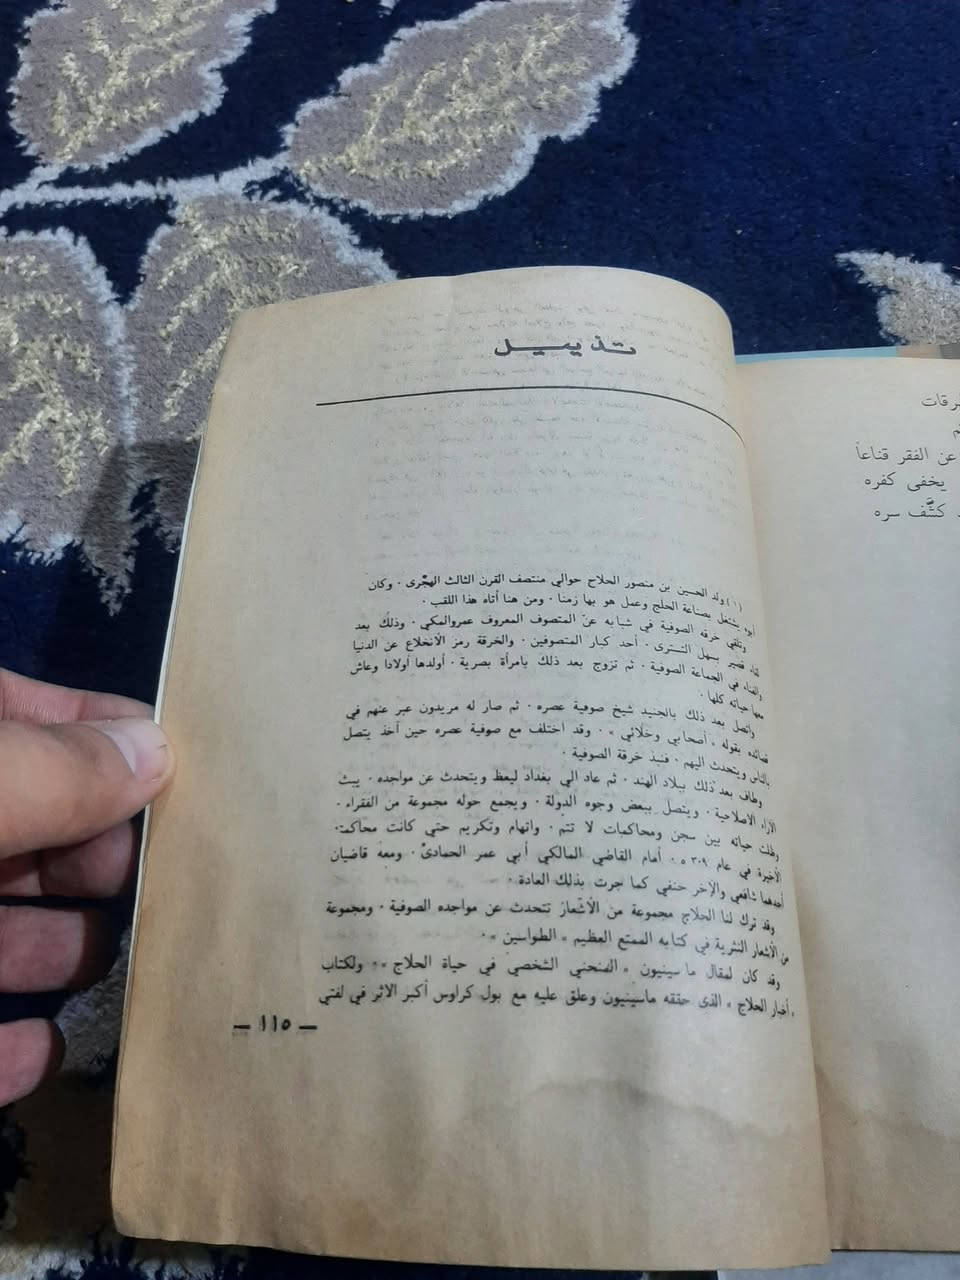 تذييل
(١) ولد الحسين بن منصور الحلاج حوالي منتصف القرن الثالث الهجرى . وكان
أبوه يشتغل بصناعة الحلج وعمل هو بها زمنا . ومن هنا أتاه هذا اللقب .
وتلقي خرقه الصوفية في شبابه عن المتصوف المعروف عمروالمكي . وذلك بعد
لقاء قصير بسهل التسترى . أحد كبار المتصوفين . والخرقة رمز الأنخلاع عن الدنيا
والفناء في الجماعة الصوفية . ثم تزوج بعد ذلك بامرأة بصرية . أولدها أولادا وعاش
معها حياته كلها .
واتصل بعد ذلك بالجنيد شيخ صوفية عصره . ثم صار له مريدون عبر عنهم في
قصائده بقوله « أصحابي وخلائي » . وقد اختلف مع صوفية عصره حين أخذ يتصل
بالناس ويتحدث اليهم . فنبذ خرقة الصوفية .
وطاف بعد ذلك ببلاد الهند . ثم عاد الي بغداد ليعظ ويتحدث عن مواجده . يبث
الآراء الاصلاحية . ويتصل ببعض وجوه الدولة . ويجمع حوله مجموعة من الفقراء .
وظلت حياته بين سجن ومحاكمات لا تتم . واتهام وتكريم حتي كانت محاكمته
الأخيرة في عام ٣٠٩ ه . أمام القاضي المالكي أبي عمر الحمادى . ومعه قاضيان
أحدهما شافعي والآخر حنفي كما جرت بذلك العادة .
وقد ترك لنا الحلاج مجموعة من الأشعار تتحدث عن مواجده الصوفية . ومجموعة
من الأشعار النثرية في كتابه الممتع العظيم « الطواسين » .
وقد كان لمقال ماسينيون « المنحني الشخصي في حياة الحلاج » . ولكتاب
« أخبار الحلاج » الذى حققه ماسينيون وعلق عليه مع بول كراوس أكبر الاثر في لفتي
— ١١٥ —
عن الفقر قناعاً
يخفى كفره
كشَّف سره